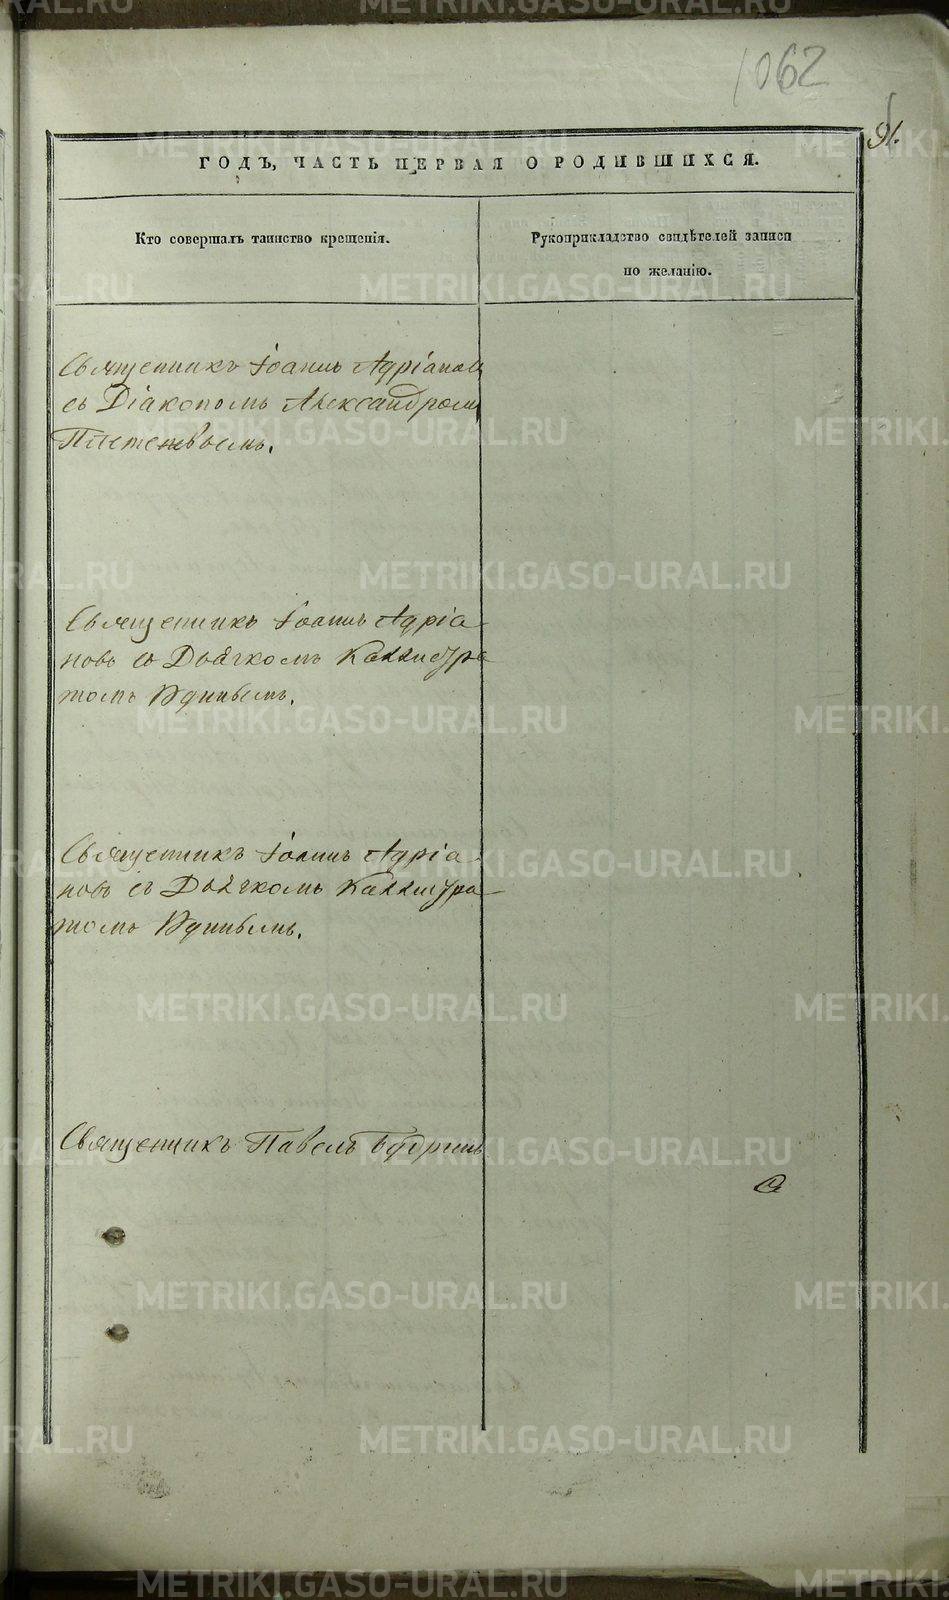 1062
91.
ГОДЪ, ЧАСТЬ ПЕРВАЯ О РОДИВШИХСЯ.
Кто совершалъ таинство крещенія.
Рукоприкладство свидѣтелей записи
по желанію.
Священникъ Іоаннъ Адріановъ
съ Діакономъ Александромъ
Священникъ Іоаннъ Адріа-
новъ со Дьячкомъ Каллистра-
томъ
Священникъ Іоаннъ Адріа-
новъ съ Дьячкомъ Каллистра-
томъ
Священникъ Павелъ Будринъ
METRIKI.GASO-URAL.RU